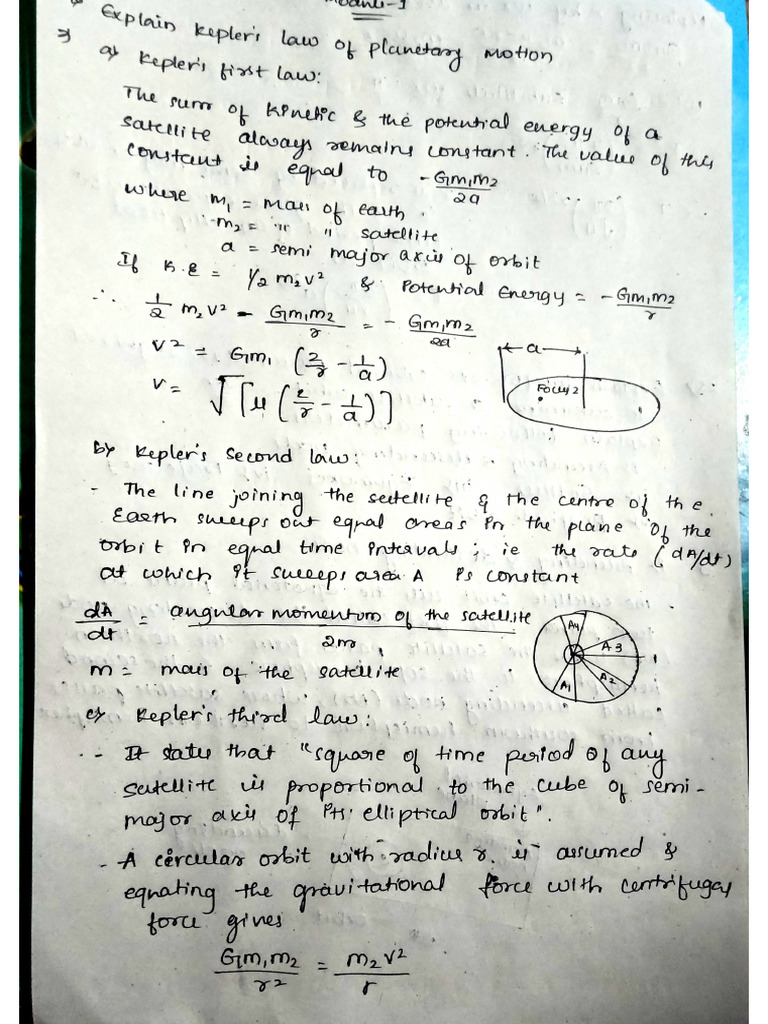 Module-1
Explain Kepler's law of planetary motion
⇒ a) Kepler's first law:
The sum of Kinetic & the potential energy of a
satellite always remains constant. The value of this
constant is equal to -Gm₁m₂/2a
where m₁ = mass of earth.
m₂ = " " satellite
a = semi major axis of orbit
If K.E = 1/2 m₂v² & Potential Energy = -Gm₁m₂/r
∴ 1/2 m₂v² - Gm₁m₂/r = - Gm₁m₂/2a
v² = Gm₁ (2/r - 1/a)
←a→
v = √[μ(2/r - 1/a)]
Focus 2
b) Kepler's Second law:
- The line joining the satellite & the centre of the
Earth sweeps out equal areas in the plane of the
orbit in equal time intervals; ie the rate (dA/dt)
at which it sweeps area A is constant
dA/dt = angular momentum of the satellite/2m
A4
A3
A2
A1
m = mass of the satellite
c) Kepler's third law:
- It states that "square of time period of any
satellite is proportional to the cube of semi-
major axis of its elliptical orbit".
- A circular orbit with radius r. is assumed &
equating the gravitational force with centrifugal
force gives
Gm₁m₂/r² = m₂v²/r